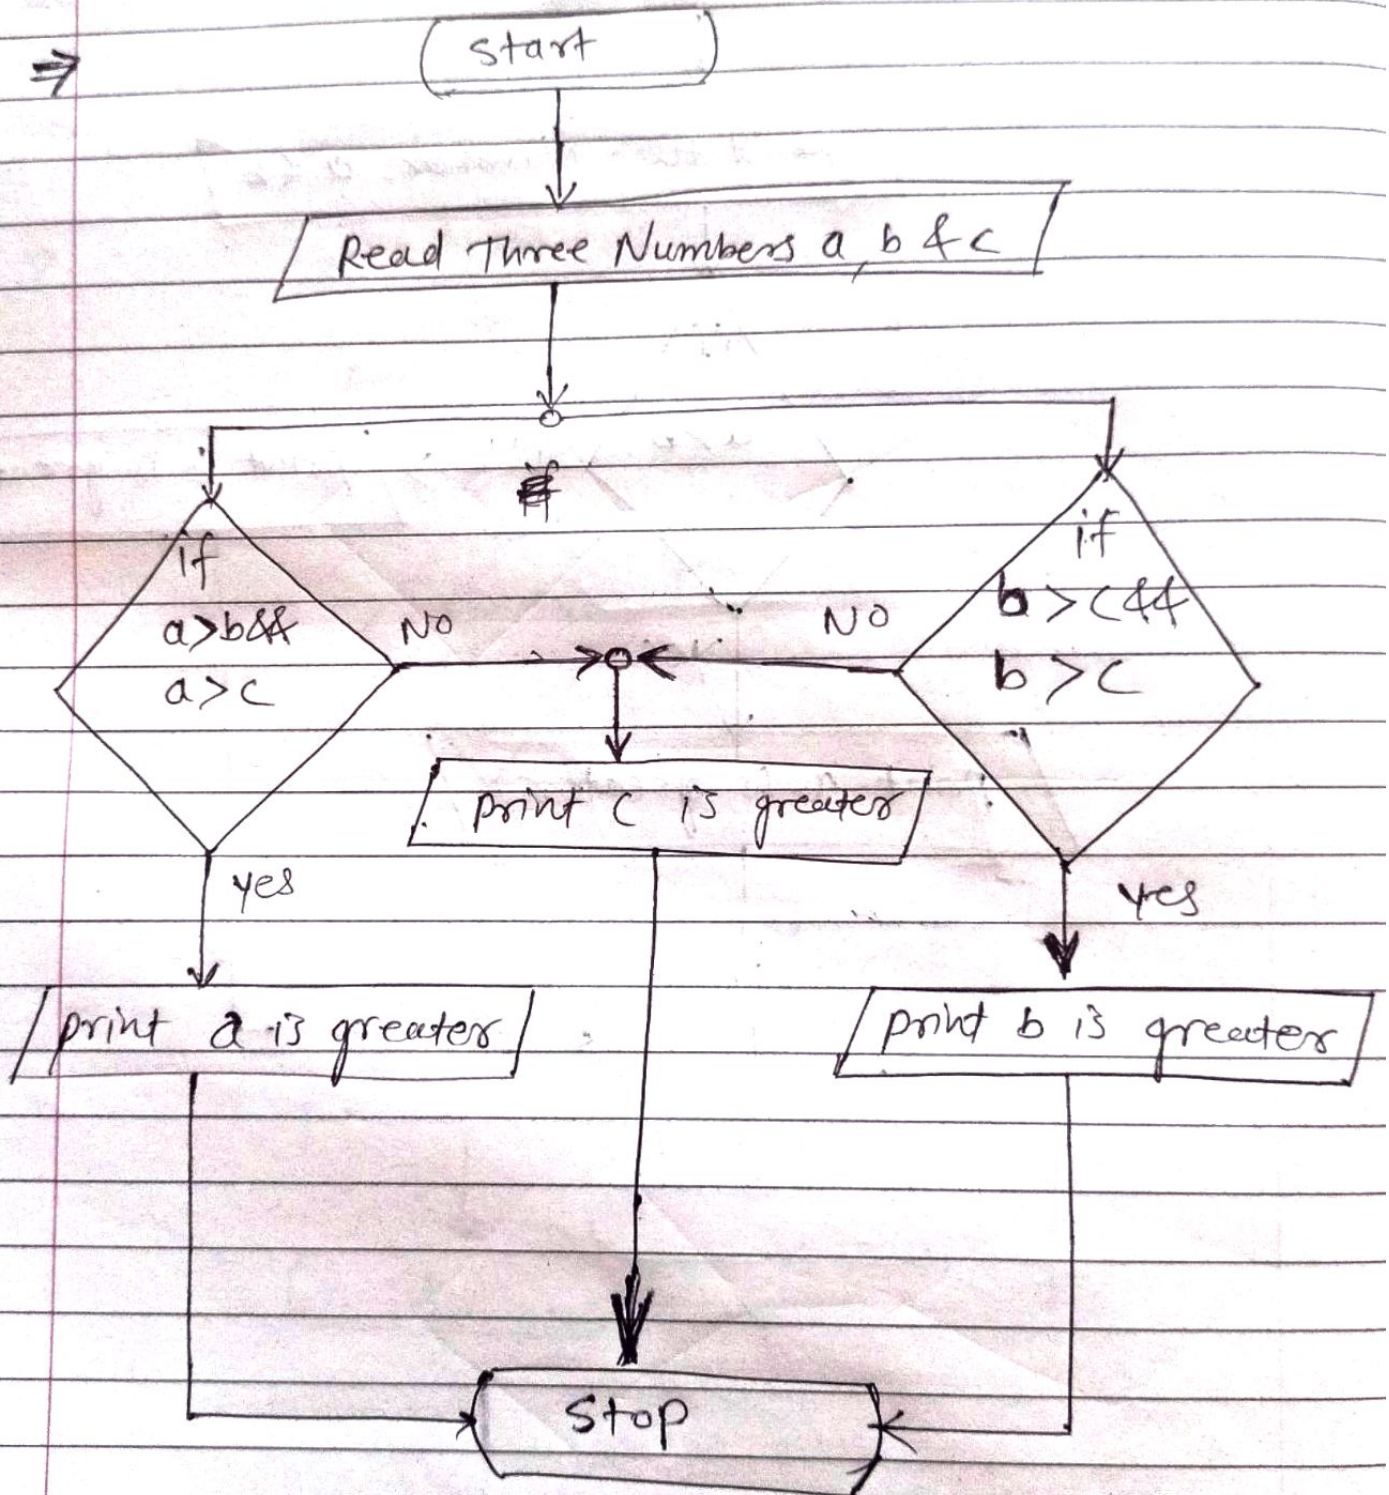 ⇒
Start
Read Three Numbers a, b & c
if
a>b&&
a>c
NO
if
b>c&&
b>c
NO
print c is greater
yes
yes
print a is greater
print b is greater
Stop